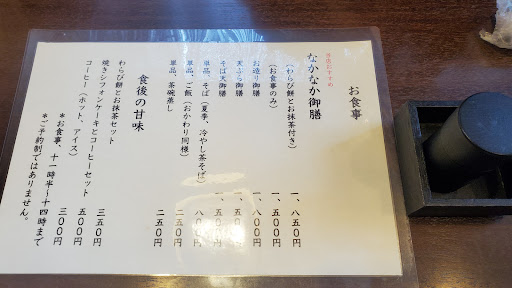 お食事
当店おすすめ
なかなか御膳
(わらび餅とお抹茶付き) 一、八五〇円
(お食事のみ) 一、五〇〇円
お造り御膳 一、八〇〇円
天ぷら御膳 一、五〇〇円
そば天御膳 一、五〇〇円
単品、そば(夏季、冷やし茶そば) 八〇〇円
単品、ご飯(おかわり同様) 二五〇円
単品、茶碗蒸し 二五〇円
食後の甘味
わらび餅とお抹茶セット 三五〇円
焼きシフォンケーキとコーヒーセット 五〇〇円
コーヒー(ホット、アイス) 三〇〇円
*お食事、十一時半~十四時まで
*ご予約制ではありません。